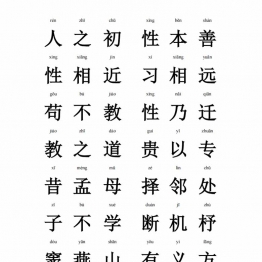 rén zhī chū xìng běn shàn
人之初 性本善
xìng xiāng jìn xí xiāng yuǎn
性相近 习相远
gǒu bú jiào xìng nǎi qiān
苟不教 性乃迁
jiào zhī dào guì yǐ zhuān
教之道 贵以专
xī mèng mǔ zé lín chǔ
昔孟母 择邻处
zǐ bù xué duàn jī zhù
子不学 断机杼
dòu yān shān yǒu yì fāng
窦燕山 有义方